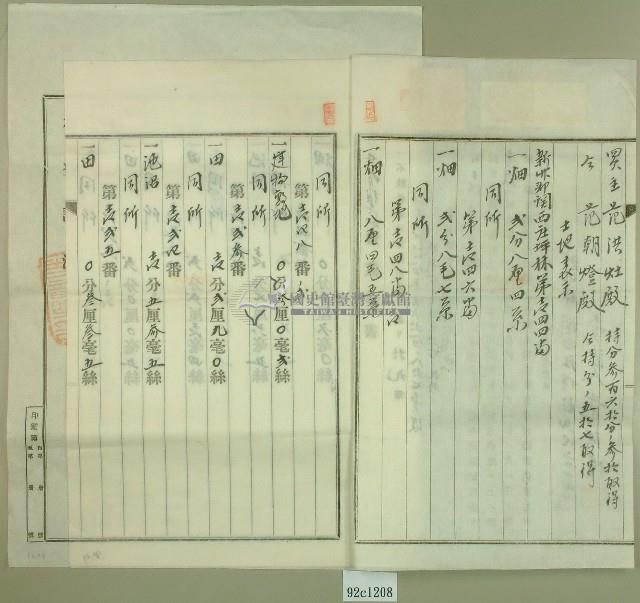 買主 范洪灶殿 持分参百六拾分ノ参拾取得
仝 范朝燈殿 仝持分ノ五拾七取得
土地表示
新竹郡関西庄坪林第壱四四番
一畑 弐分八厘四糸
同所
第壱四六番
一畑 弐分八毛七糸
同所
第壱四八番
一畑 八厘四毛五糸
同所
第壱四八番ノ
一建物敷地 〇分参厘〇毫弐絲
同所
第壱弐参番
一田 壱分弐厘九毫〇絲
同所
第壱弐四番
一池沼 壱分五厘参毫五絲
同所
第壱弐五番
一田 〇分参厘参毫五絲
印鑑簿
冊
號
國史館臺灣文獻館
TAIWAN HISTORICA
92c1208